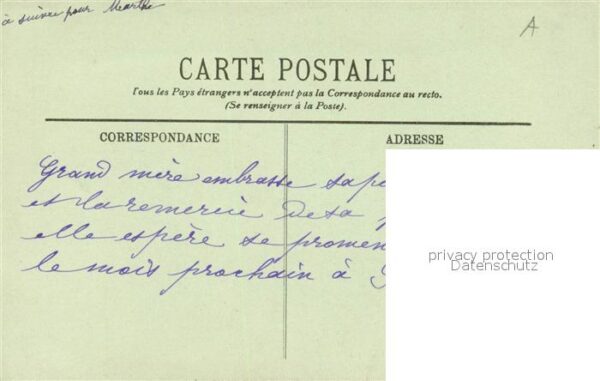 à suivre pour Marthe
A
CARTE POSTALE
Tous les Pays étrangers n'acceptent pas la Correspondance au recto.
(Se renseigner à la Poste).
CORRESPONDANCE
ADRESSE
Grand mère embrasse sa pe
et la remercie de sa
elle espère se promen
le mois prochain à
privacy protection
Datenschutz